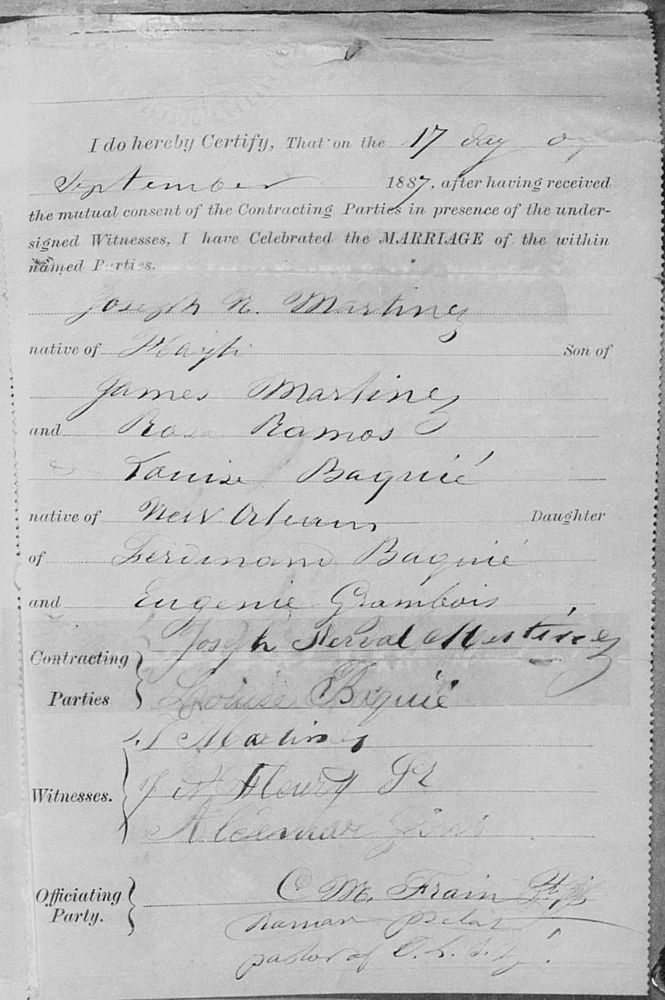 I do hereby Certify, That on the 17 day of
September 1887, after having received
the mutual consent of the Contracting Parties in presence of the under-
signed Witnesses, I have Celebrated the MARRIAGE of the within
named Parties.
Joseph N. Martinez
native of Hayti Son of
James Martinez
and Rosa Ramos
& Louise Baquié
native of New Orleans Daughter
of Ferdinand Baquié
and Eugenie Grambois
Contracting Parties
Joseph Nerval Martinez
Louise Baquié
Witnesses.
Martinez
Fleury Jr
Officiating Party.
C. M. Frain
pastor of